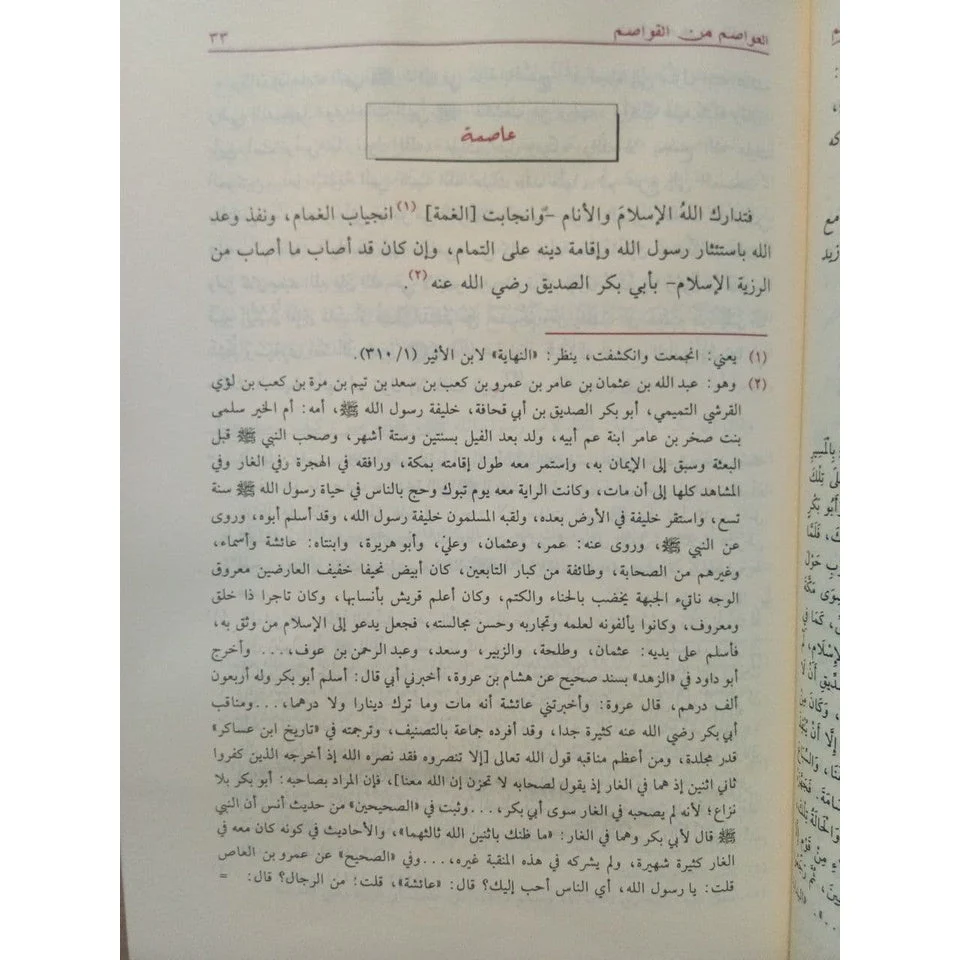 العواصم من القواصم ٣٣
عاصمة
فتدارك اللهُ الإسلامَ والأنام -وانجابت [الغمة] (١) انجياب الغمام، ونفذ وعد
الله باستئثار رسول الله وإقامة دينه على التمام، وإن كان قد أصاب ما أصاب من
الرزية الإسلام- بأبي بكر الصديق رضي الله عنه(٢).
(١) يعني: انجمعت وانكشفت، ينظر: «النهاية» لابن الأثير (٣١٠/١).
(٢) وهو: عبد الله بن عثمان بن عامر بن عمرو بن كعب بن سعد بن تيم بن مرة بن كعب بن لؤي
القرشي التميمي، أبو بكر الصديق بن أبي قحافة، خليفة رسول الله ﷺ، أمه: أم الخير سلمى
بنت صخر بن عامر ابنة عم أبيه، ولد بعد الفيل بسنتين وستة أشهر، وصحب النبي ﷺ قبل
البعثة وسبق إلى الإيمان به، واستمر معه طول إقامته بمكة، ورافقه في الهجرة وفي الغار وفي
المشاهد كلها إلى أن مات، وكانت الراية معه يوم تبوك وحج بالناس في حياة رسول الله ﷺ سنة
تسع، واستقر خليفة في الأرض بعده، ولقبه المسلمون خليفة رسول الله، وقد أسلم أبوه، وروى
عن النبي ﷺ، وروى عنه: عمر، وعثمان، وعلي، وأبو هريرة، وابنتاه: عائشة وأسماء،
وغيرهم من الصحابة، وطائفة من كبار التابعين، كان أبيض نحيفا خفيف العارضين معروق
الوجه ناتيء الجبهة يخضب بالحناء والكتم، وكان أعلم قريش بأنسابها، وكان تاجرا ذا خلق
ومعروف، وكانوا يألفونه لعلمه وتجاربه وحسن مجالسته، فجعل يدعو إلى الإسلام من وثق به،
فأسلم على يديه: عثمان، وطلحة، والزبير، وسعد، وعبد الرحمن بن عوف،... وأخرج
أبو داود في «الزهد» بسند صحيح عن هشام بن عروة، أخبرني أبي قال: أسلم أبو بكر وله أربعون
ألف درهم، قال عروة: وأخبرتني عائشة أنه مات وما ترك دينارا ولا درهما،...ومناقب
أبي بكر رضي الله عنه كثيرة جدا، وقد أفرده جماعة بالتصنيف، وترجمته في «تاريخ ابن عساكر»
قدر مجلدة، ومن أعظم مناقبه قول الله تعالى [إلا تنصروه فقد نصره الله إذ أخرجه الذين كفروا
ثاني اثنين إذ هما في الغار إذ يقول لصحابه لا تحزن إن الله معنا]، فإن المراد بصاحبه: أبو بكر بلا
نزاع؛ لأنه لم يصحبه في الغار سوى أبي بكر،...وثبت في «الصحيحين» من حديث أنس أن النبي
ﷺ قال لأبي بكر وهما في الغار: «ما ظنك باثنين الله ثالثهما»، والأحاديث في كونه كان معه في
الغار كثيرة شهيرة، ولم يشركه في هذه المنقبة غيره،...وفي «الصحيح» عن عمرو بن العاص
قلت: يا رسول الله، أي الناس أحب إليك؟ قال: «عائشة»، قلت: من الرجال؟ قال: =